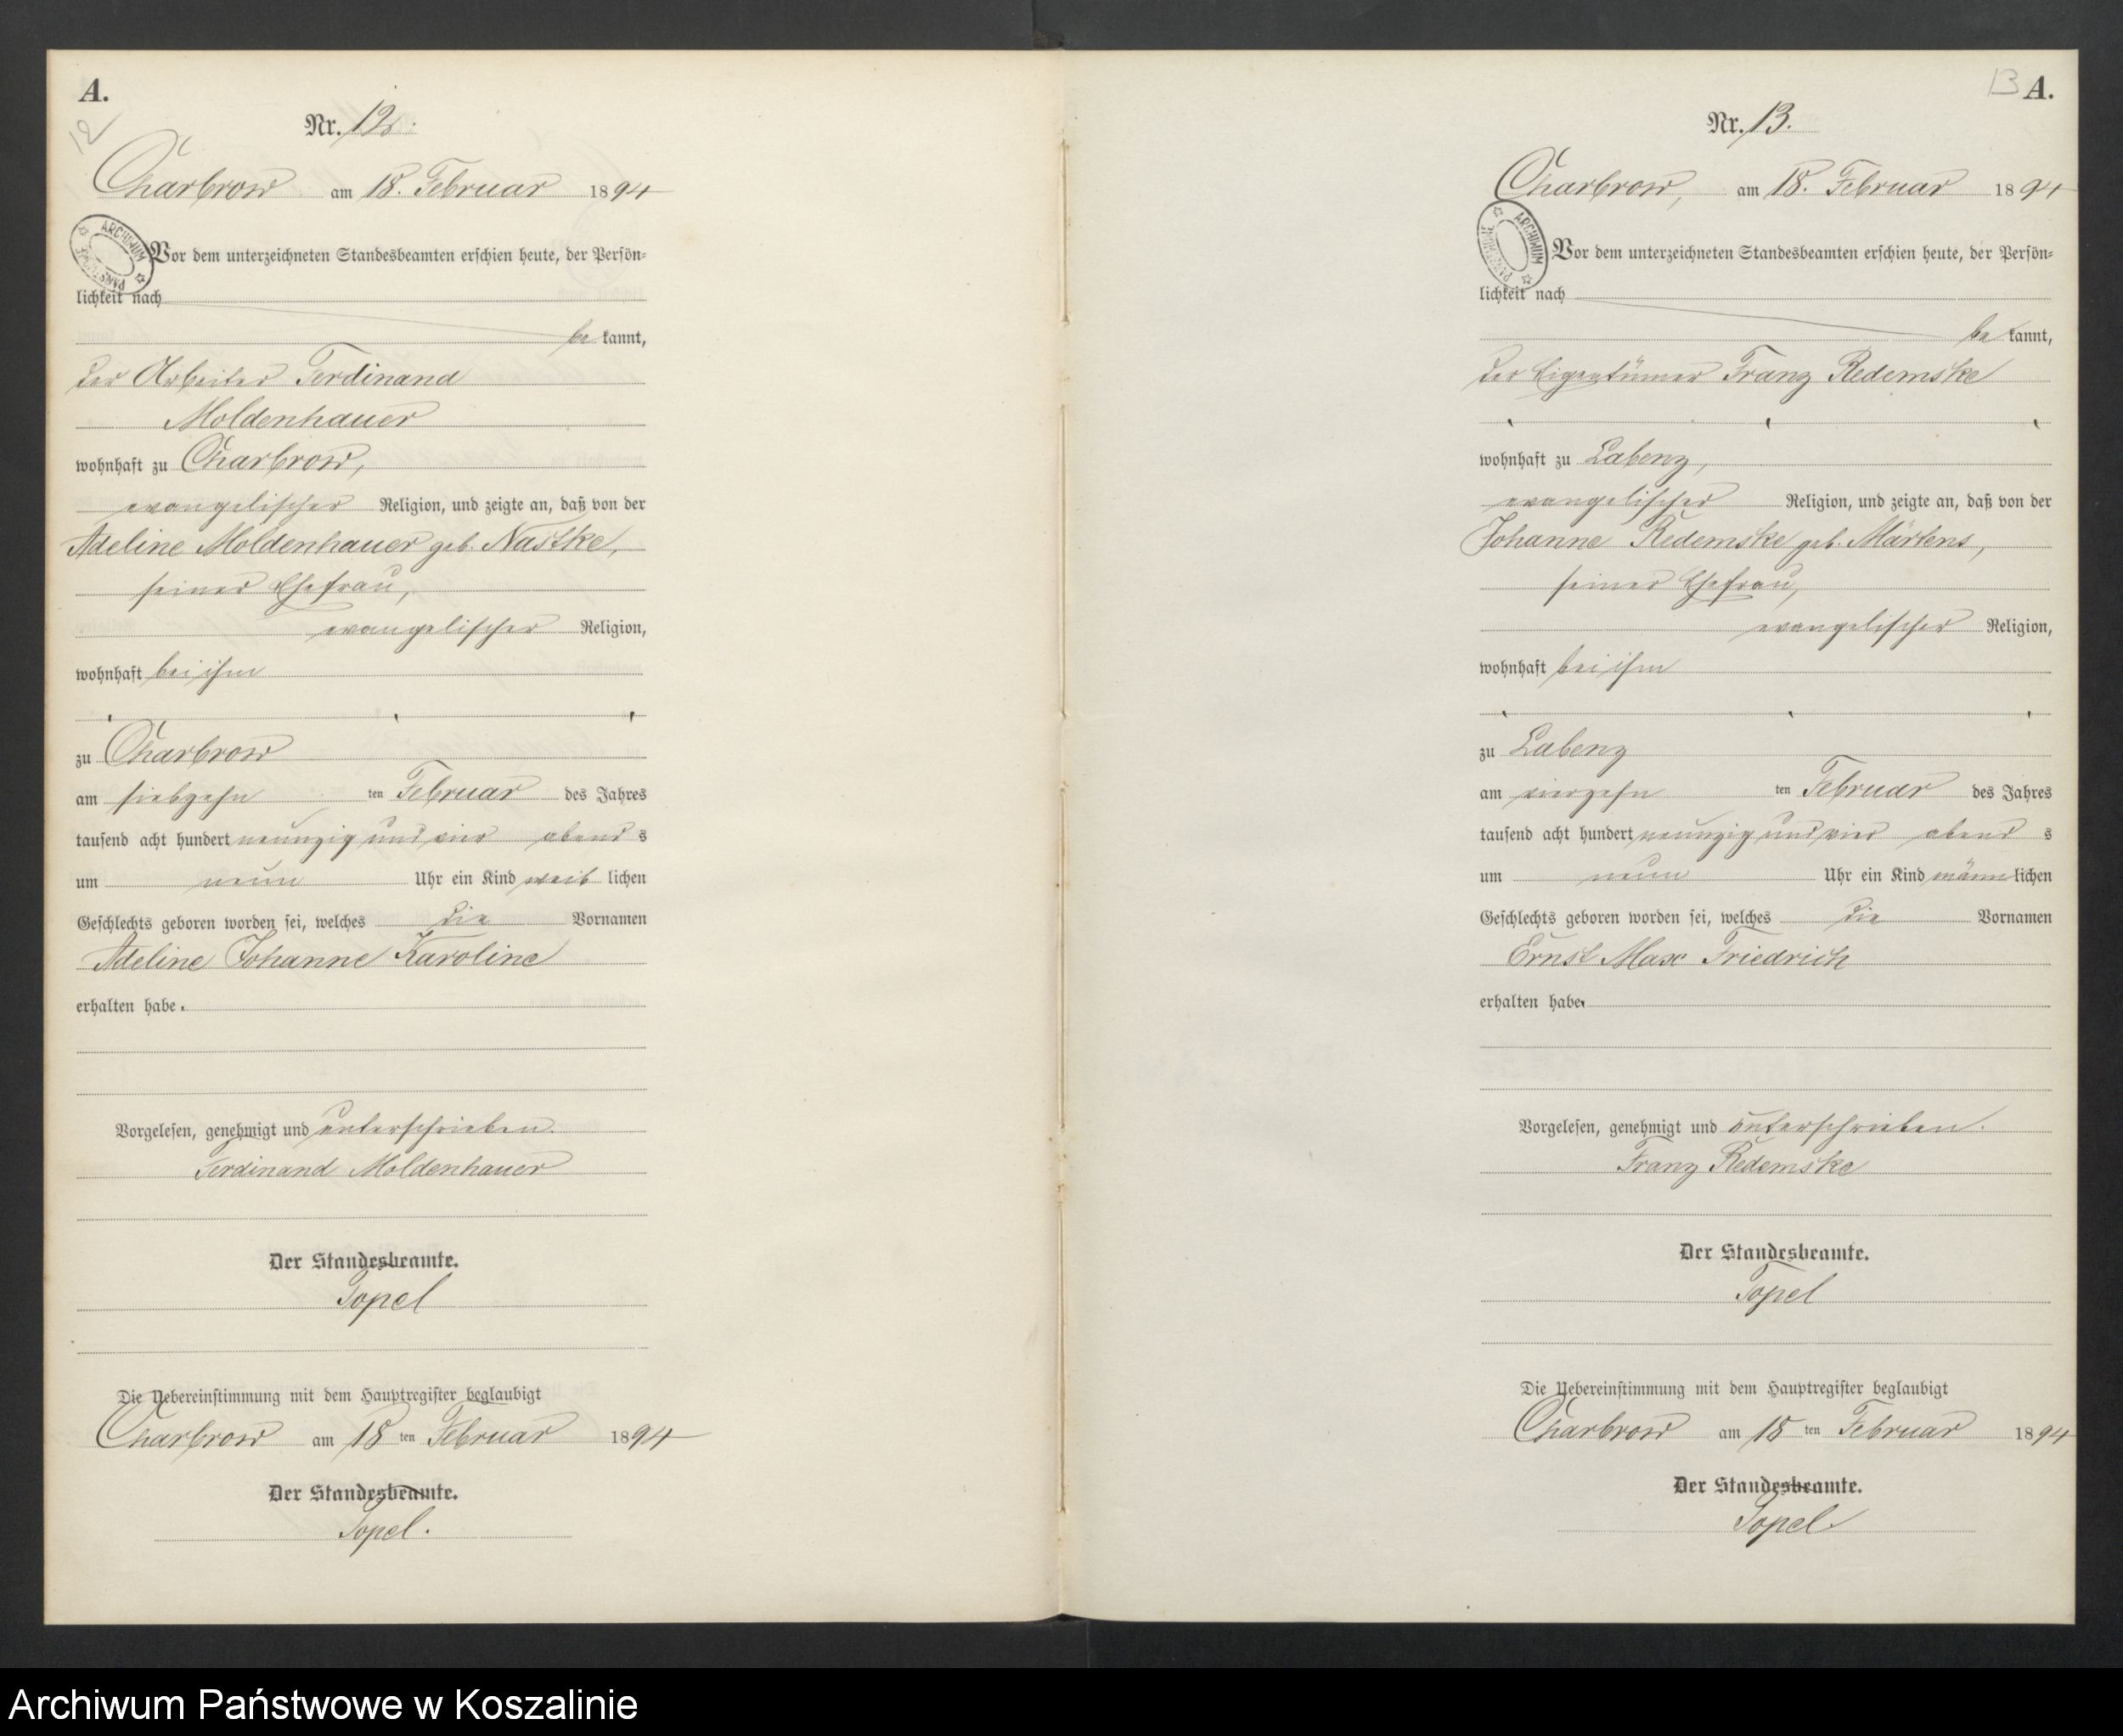 A.
12
Nr. 12.
Charbrow am 18. Februar 1894
ARCHIWUM PAŃSTWOWE
Vor dem unterzeichneten Standesbeamten erschien heute, der Persön-
lichkeit nach
be kannt,
der Arbeiter Ferdinand
Moldenhauer
wohnhaft zu Charbrow,
evangelischer Religion, und zeigte an, daß von der
Adeline Moldenhauer geb. Nastke,
seiner Ehefrau,
evangelischer Religion,
wohnhaft bei ihm
zu Charbrow
am siebzehn ten Februar des Jahres
tausend acht hundert neunzig und vier abend s
um neun Uhr ein Kind weib lichen
Geschlechts geboren worden sei, welches die Vornamen
Adeline Johanne Karoline
erhalten habe.
Vorgelesen, genehmigt und unterschrieben.
Ferdinand Moldenhauer
Der Standesbeamte.
Topel
Die Uebereinstimmung mit dem Hauptregister beglaubigt
Charbrow am 18 ten Februar 1894
Der Standesbeamte.
Topel.
13 A.
Nr. 13.
Charbrow, am 18. Februar 1894
ARCHIWUM PAŃSTWOWE
Vor dem unterzeichneten Standesbeamten erschien heute, der Persön-
lichkeit nach
be kannt,
der Eigentümer Franz Redemske
wohnhaft zu Labenz,
evangelischer Religion, und zeigte an, daß von der
Johanne Redemske geb. Märtens,
seiner Ehefrau,
evangelischer Religion,
wohnhaft bei ihm
zu Labenz
am vierzehn ten Februar des Jahres
tausend acht hundert neunzig und vier abend s
um neun Uhr ein Kind männ lichen
Geschlechts geboren worden sei, welches die Vornamen
Ernst Max Friedrich
erhalten habe.
Vorgelesen, genehmigt und unterschrieben.
Franz Redemske
Der Standesbeamte.
Topel
Die Uebereinstimmung mit dem Hauptregister beglaubigt
Charbrow am 18 ten Februar 1894
Der Standesbeamte.
Topel.
Archiwum Państwowe w Koszalinie